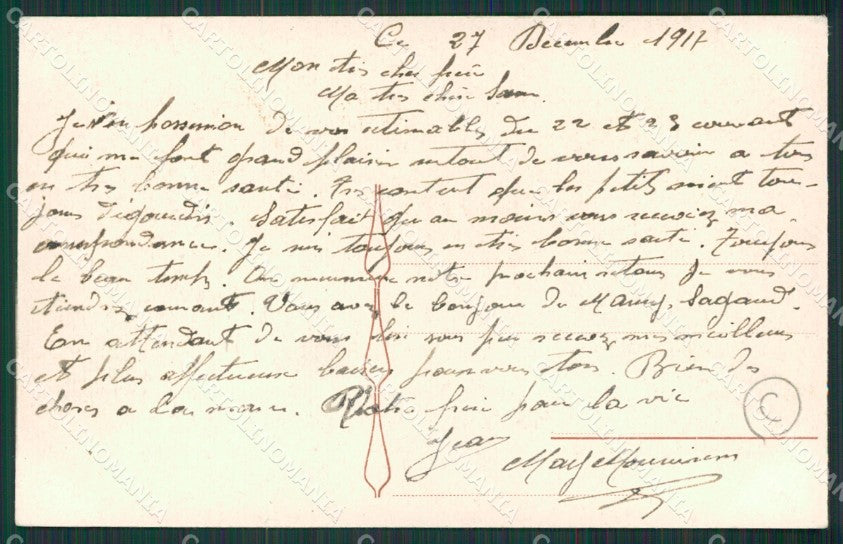 Ce 27 Decembre 1917
Mon très cher père
Ma très chère Sœur.
Je possession de vos estimables du 22 et 23 courant
qui me font grand plaisir surtout de vous savoir a tous
en très bonne santé. Très content que les petits soient tou-
jours dégourdis. Satisfait qu'au moins vous recevez ma
correspondance. Je suis toujours en très bonne santé. Toujours
le beau temps. On prochain retour je vous
Vous avez le bonjour de Sagaud.
En attendant de vous lire vous recevez mes meilleurs
et plus affectueux baisers pour vous tous. Bien des
choses a frère pour la vie
Jean
C
CARTOLINOMANIA